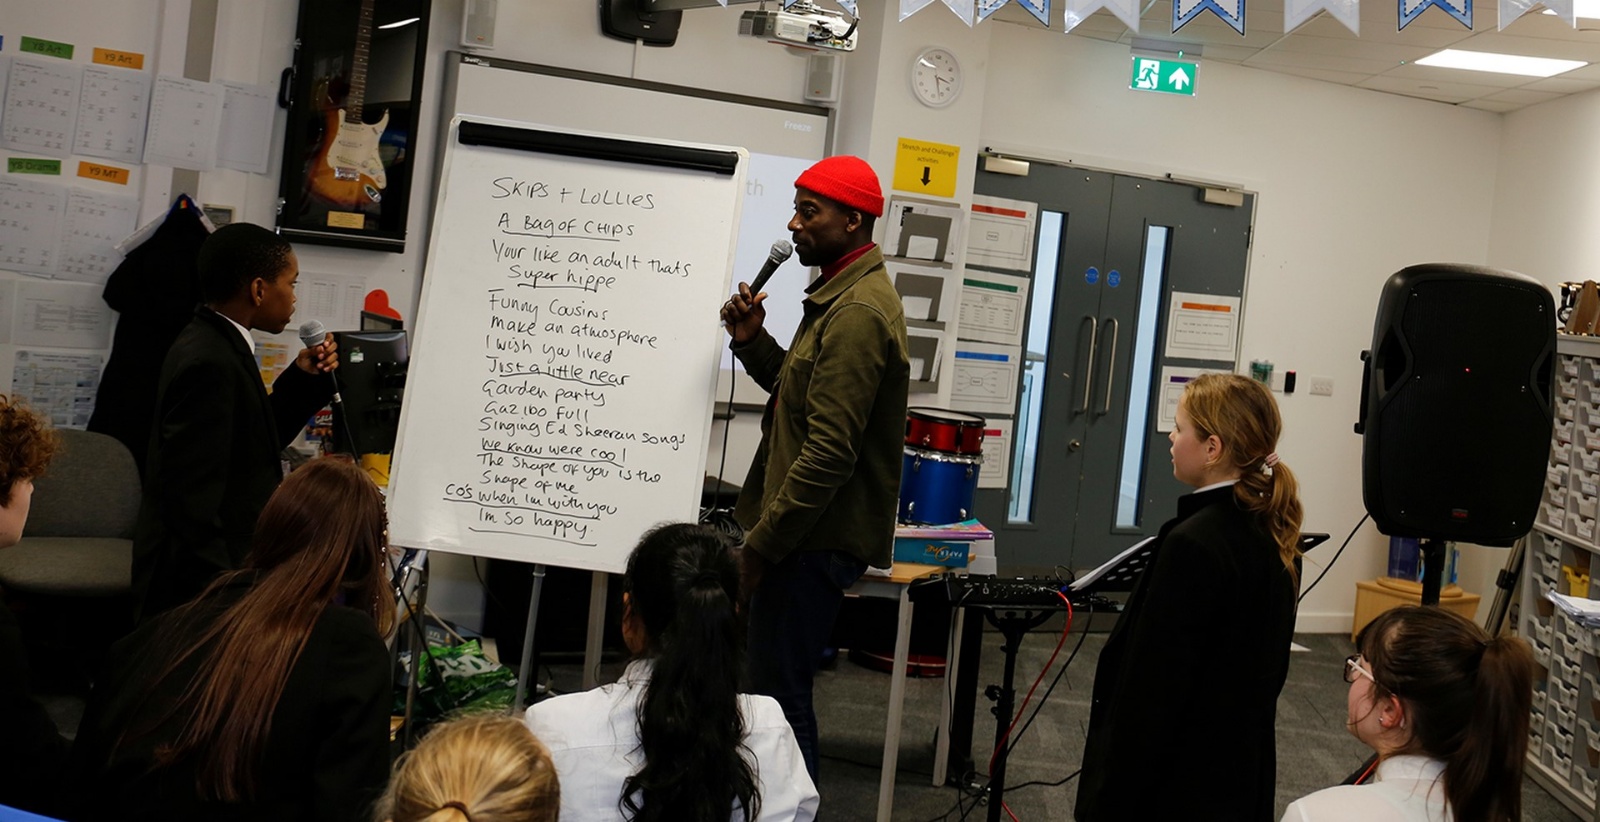 Y8 Art
Y9 Art
Y8 Drama
Y9 MT
SMART
Freeze
th
Stretch and Challenge
activities
SKIPS + LOLLIES
A BAG OF CHIPS
Your like an adult thats
Super hippe
Funny Cousins
Make an atmosphere
I wish you lived
Just a little near
Garden party
Gazibo full
Singing Ed Sheeran songs
We know were cool
The Shape of you is the
Shape of me
cos when im with you
Im so happy.
PAPER